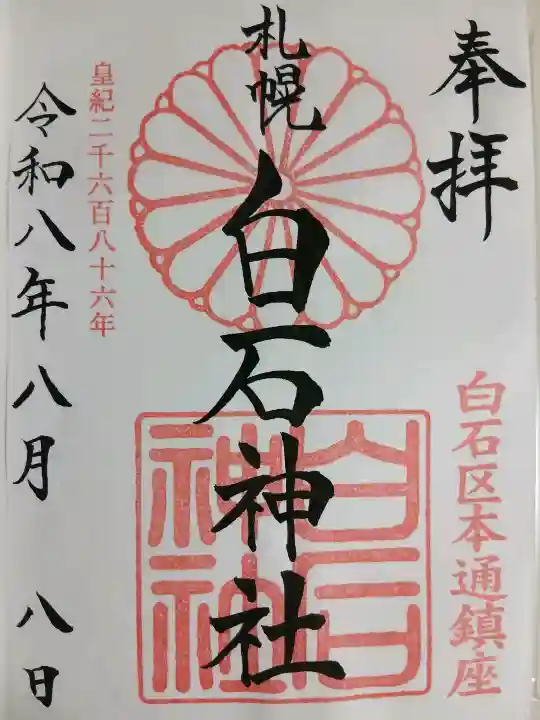 奉拝
白石区本通鎮座
札幌
白石神社
白石神社
皇紀二千六百八十六年
令和八年八月 八日